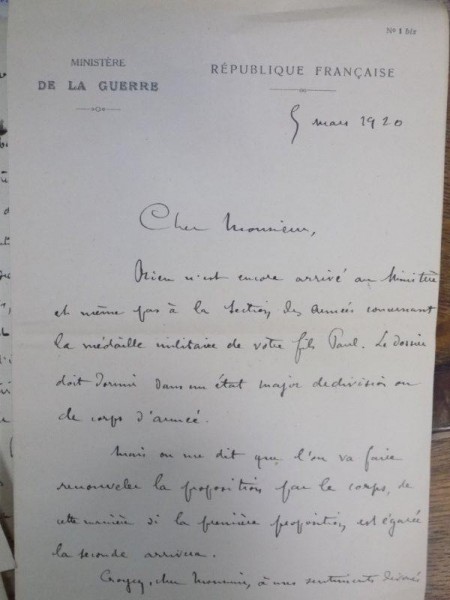 Nº 1 bis
MINISTÈRE
DE LA GUERRE
RÉPUBLIQUE FRANÇAISE
5 mars 1920
Cher Monsieur,
Rien n'est encore arrivé au Ministère
et même pas à la Section des Armées concernant
la médaille militaire de votre fils Paul. Le dossier
doit dormir dans un état major de division ou
de corps d'armée.
Mais on me dit que l'on va faire
renouveler la proposition par le corps, de
cette manière si la première proposition est égarée
la seconde arrivera.
Croyez, cher Monsieur, à mes sentiments dévoués